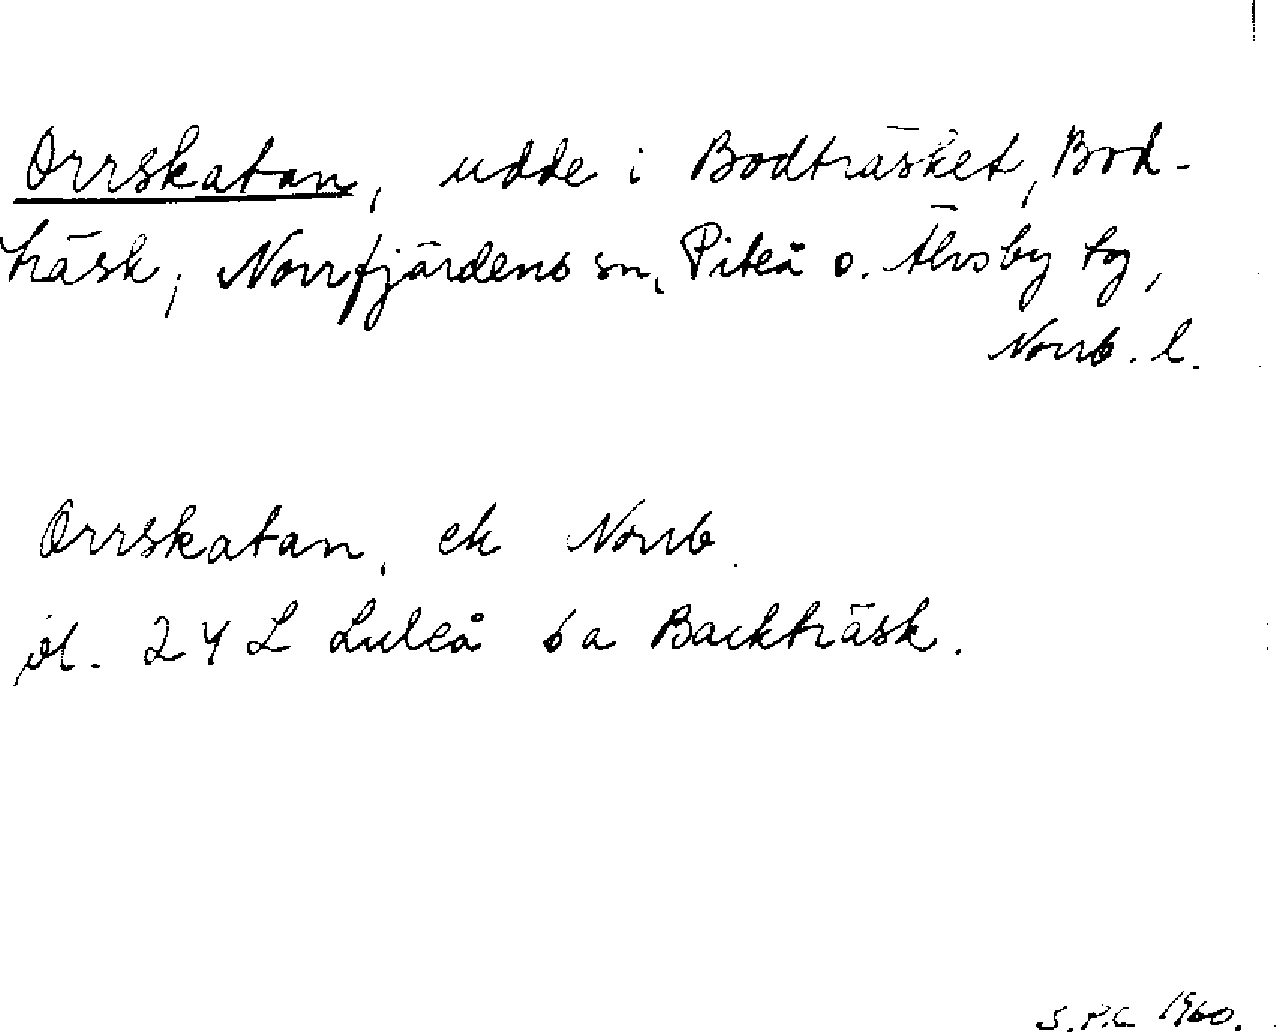 Orrskatan, udde i Bodträsket, Bod-
träsk, Norrfjärdens sn, Piteå o. Älvsby tg,
Norrb. l.
Orrskatan, ek Norrb.
bl. 24 L Luleå 6a Backträsk.
S.P.C 1960.